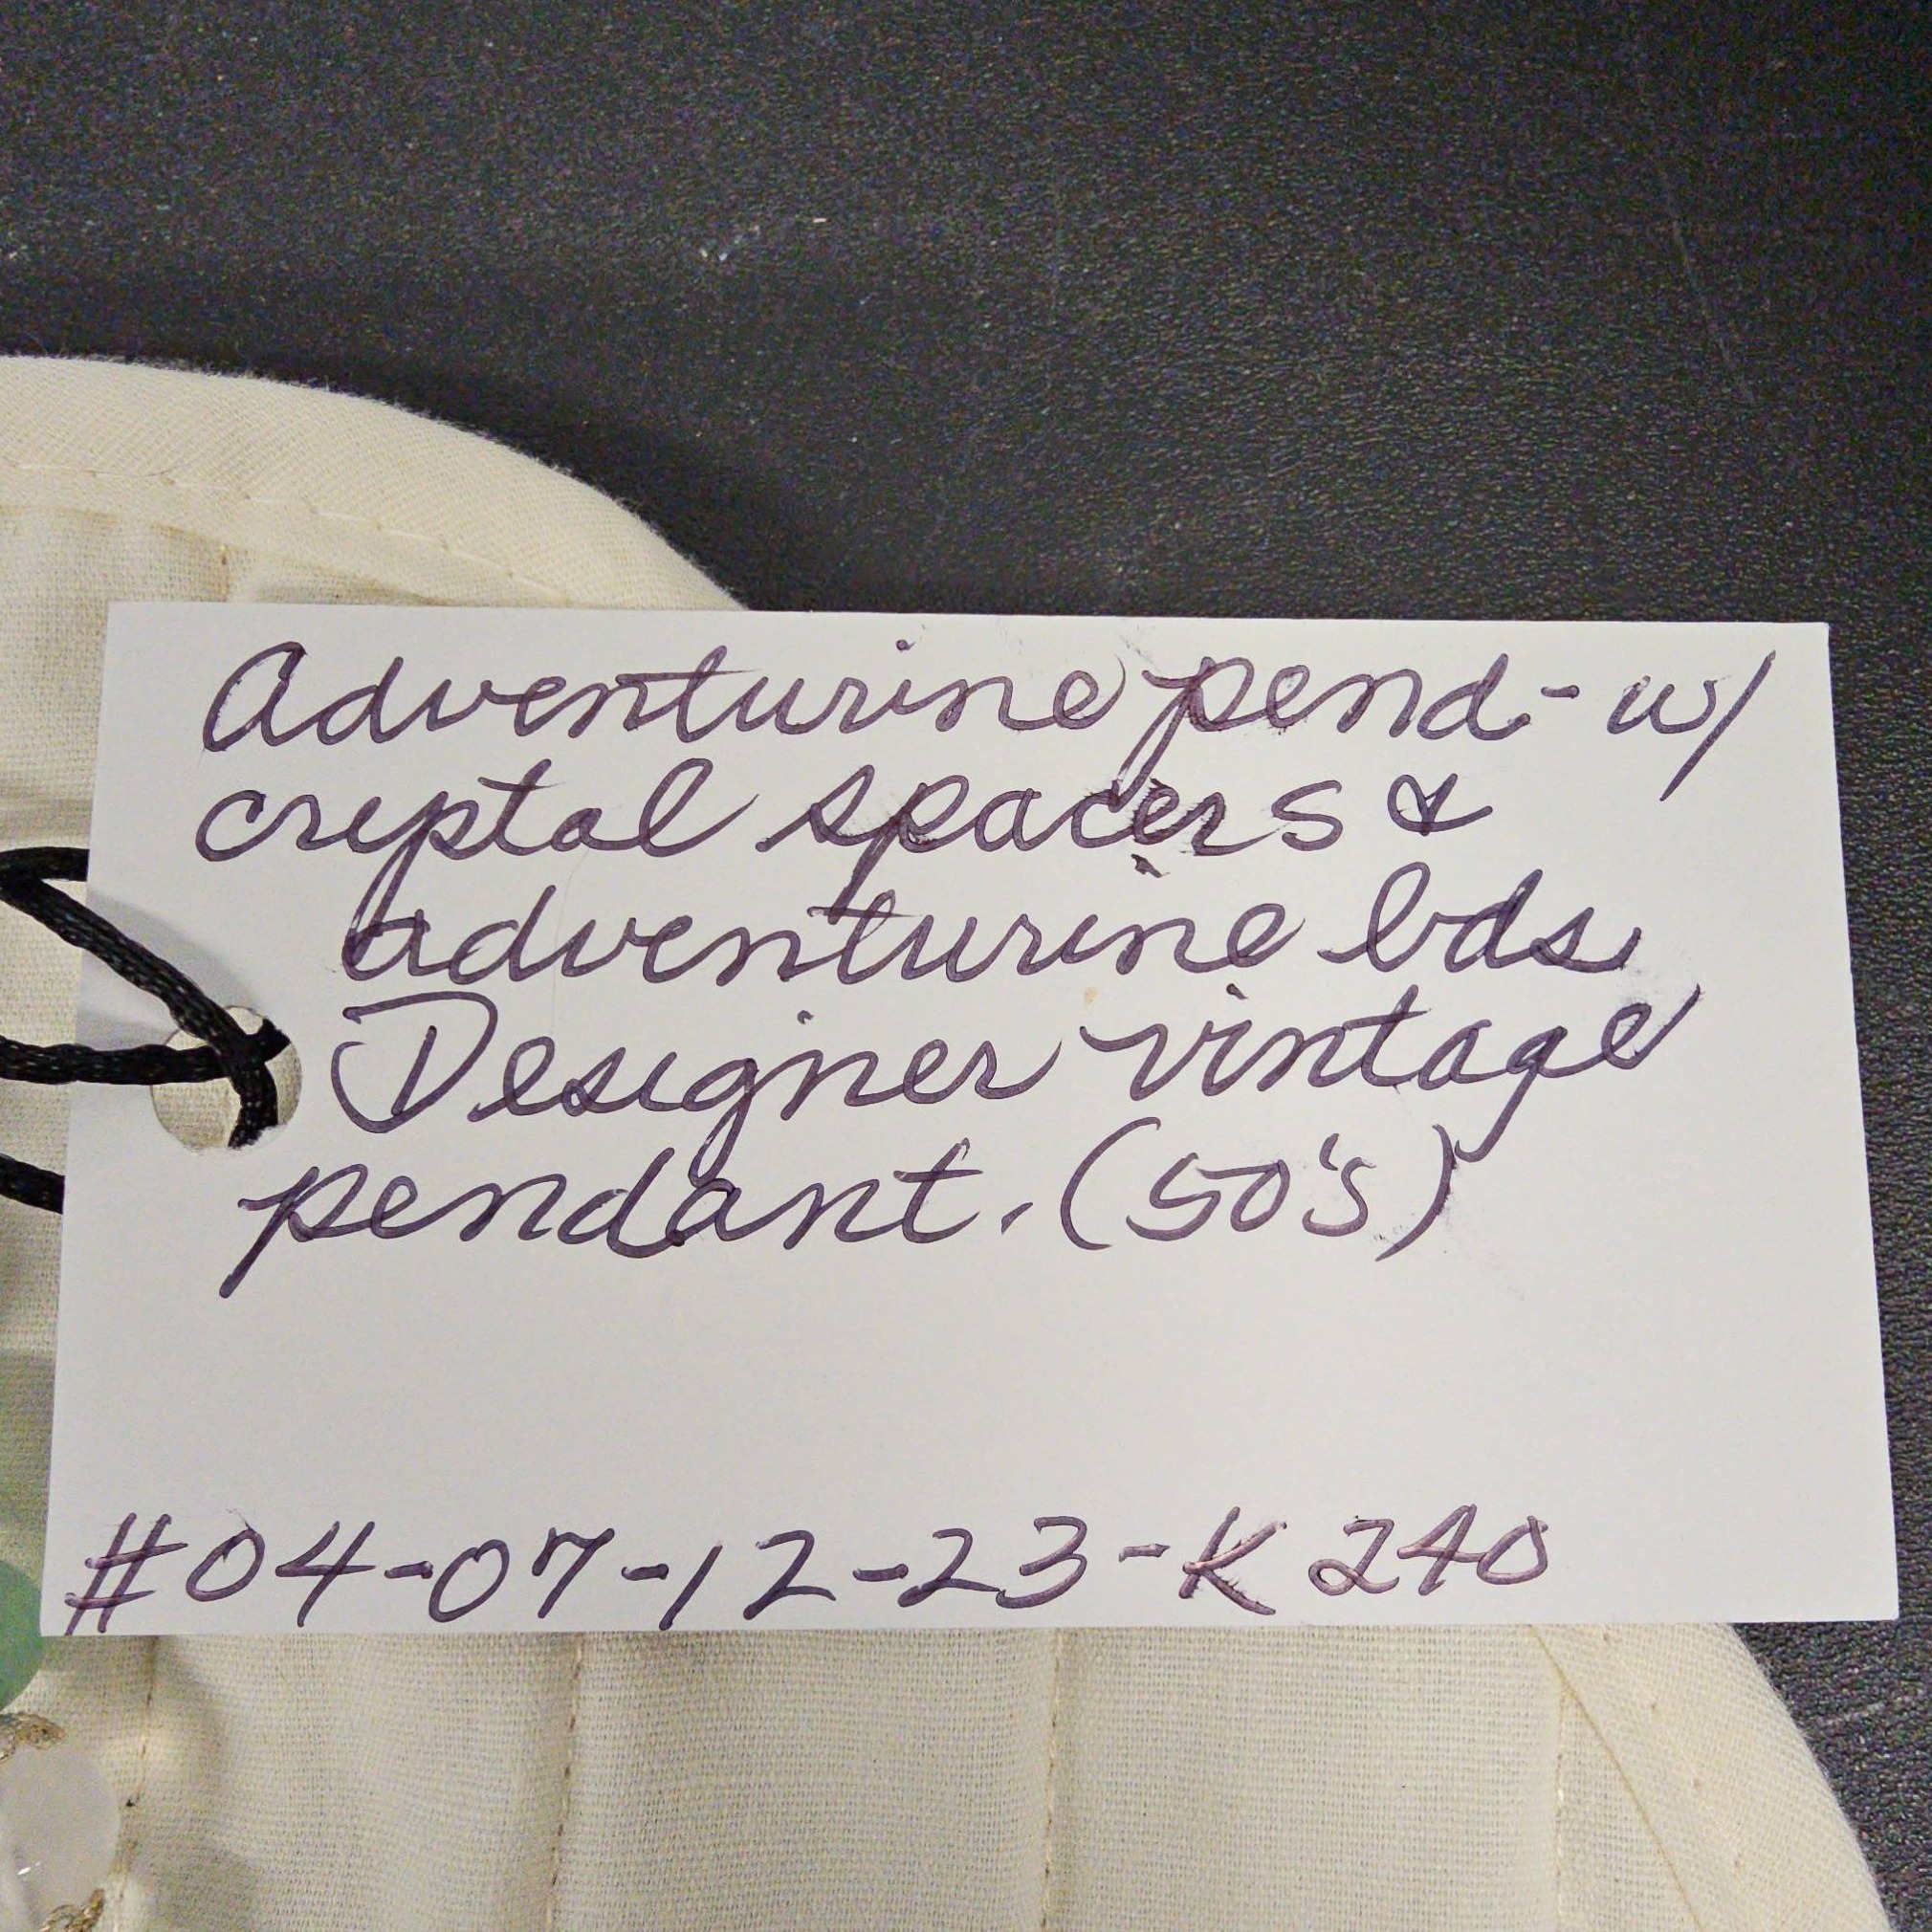 Adventurine pend.- w/
crystal spacers &
adventurine bds.
Designer vintage
pendant. (50's)
#04-07-12-23-K240